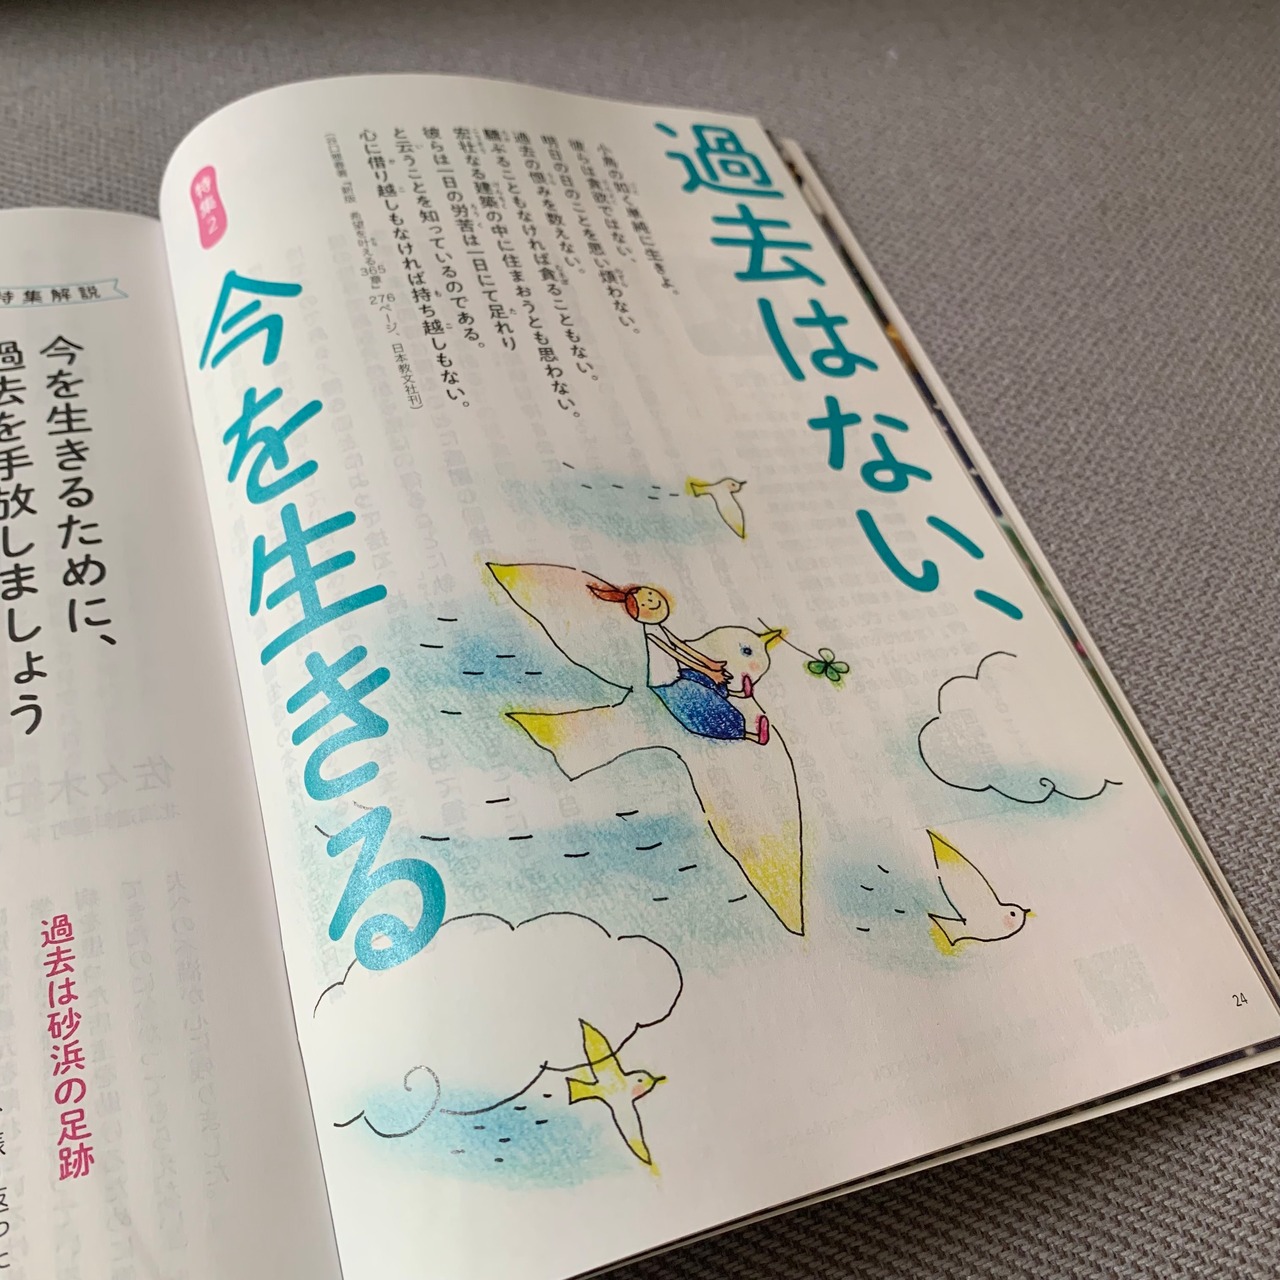 過去はない、
小鳥の如く単純に生きよ。
彼らは貪欲ではない、
明日の日のことを思い煩わない。
過去の恨みを数えない。
驕ぶることもなければ貪ることもない。
宏壮なる建築の中に住まおうとも思わない。
彼らは一日の労苦は一日にて足れり
と云うことを知っているのである。
心に借り越しもなければ持ち越しもない。
(谷口雅春著『新版 希望を叶える365章』276ページ、日本教文社刊)
特集2
今を生きる
24
特集解説
今を生きるために、
過去を手放しましょう
過去は砂浜の足跡